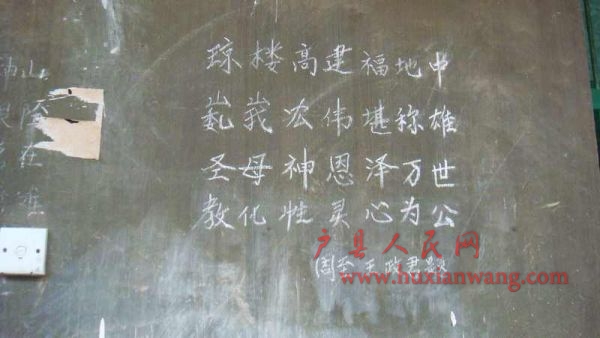 琼楼高建福地中
巍峩宏伟堪称雄
圣母神恩泽万世
教化牲灵心为公
周至王政君
户县人民网
www.huxianwang.com
山
在